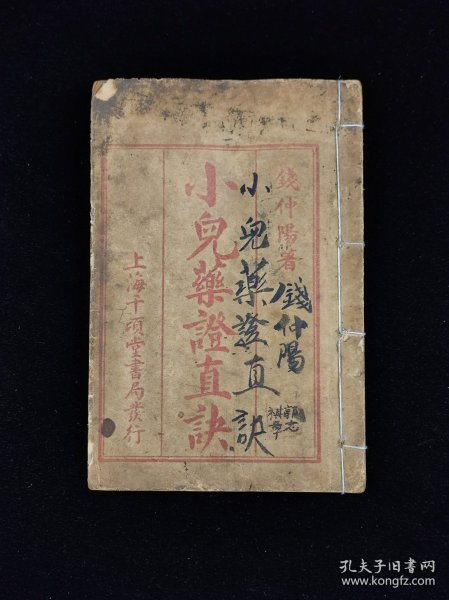 錢仲陽著
錢仲陽
小兒藥證直訣
小兒藥證直訣
上海千頃堂書局發行
孔夫子旧书网
www.kongfz.com